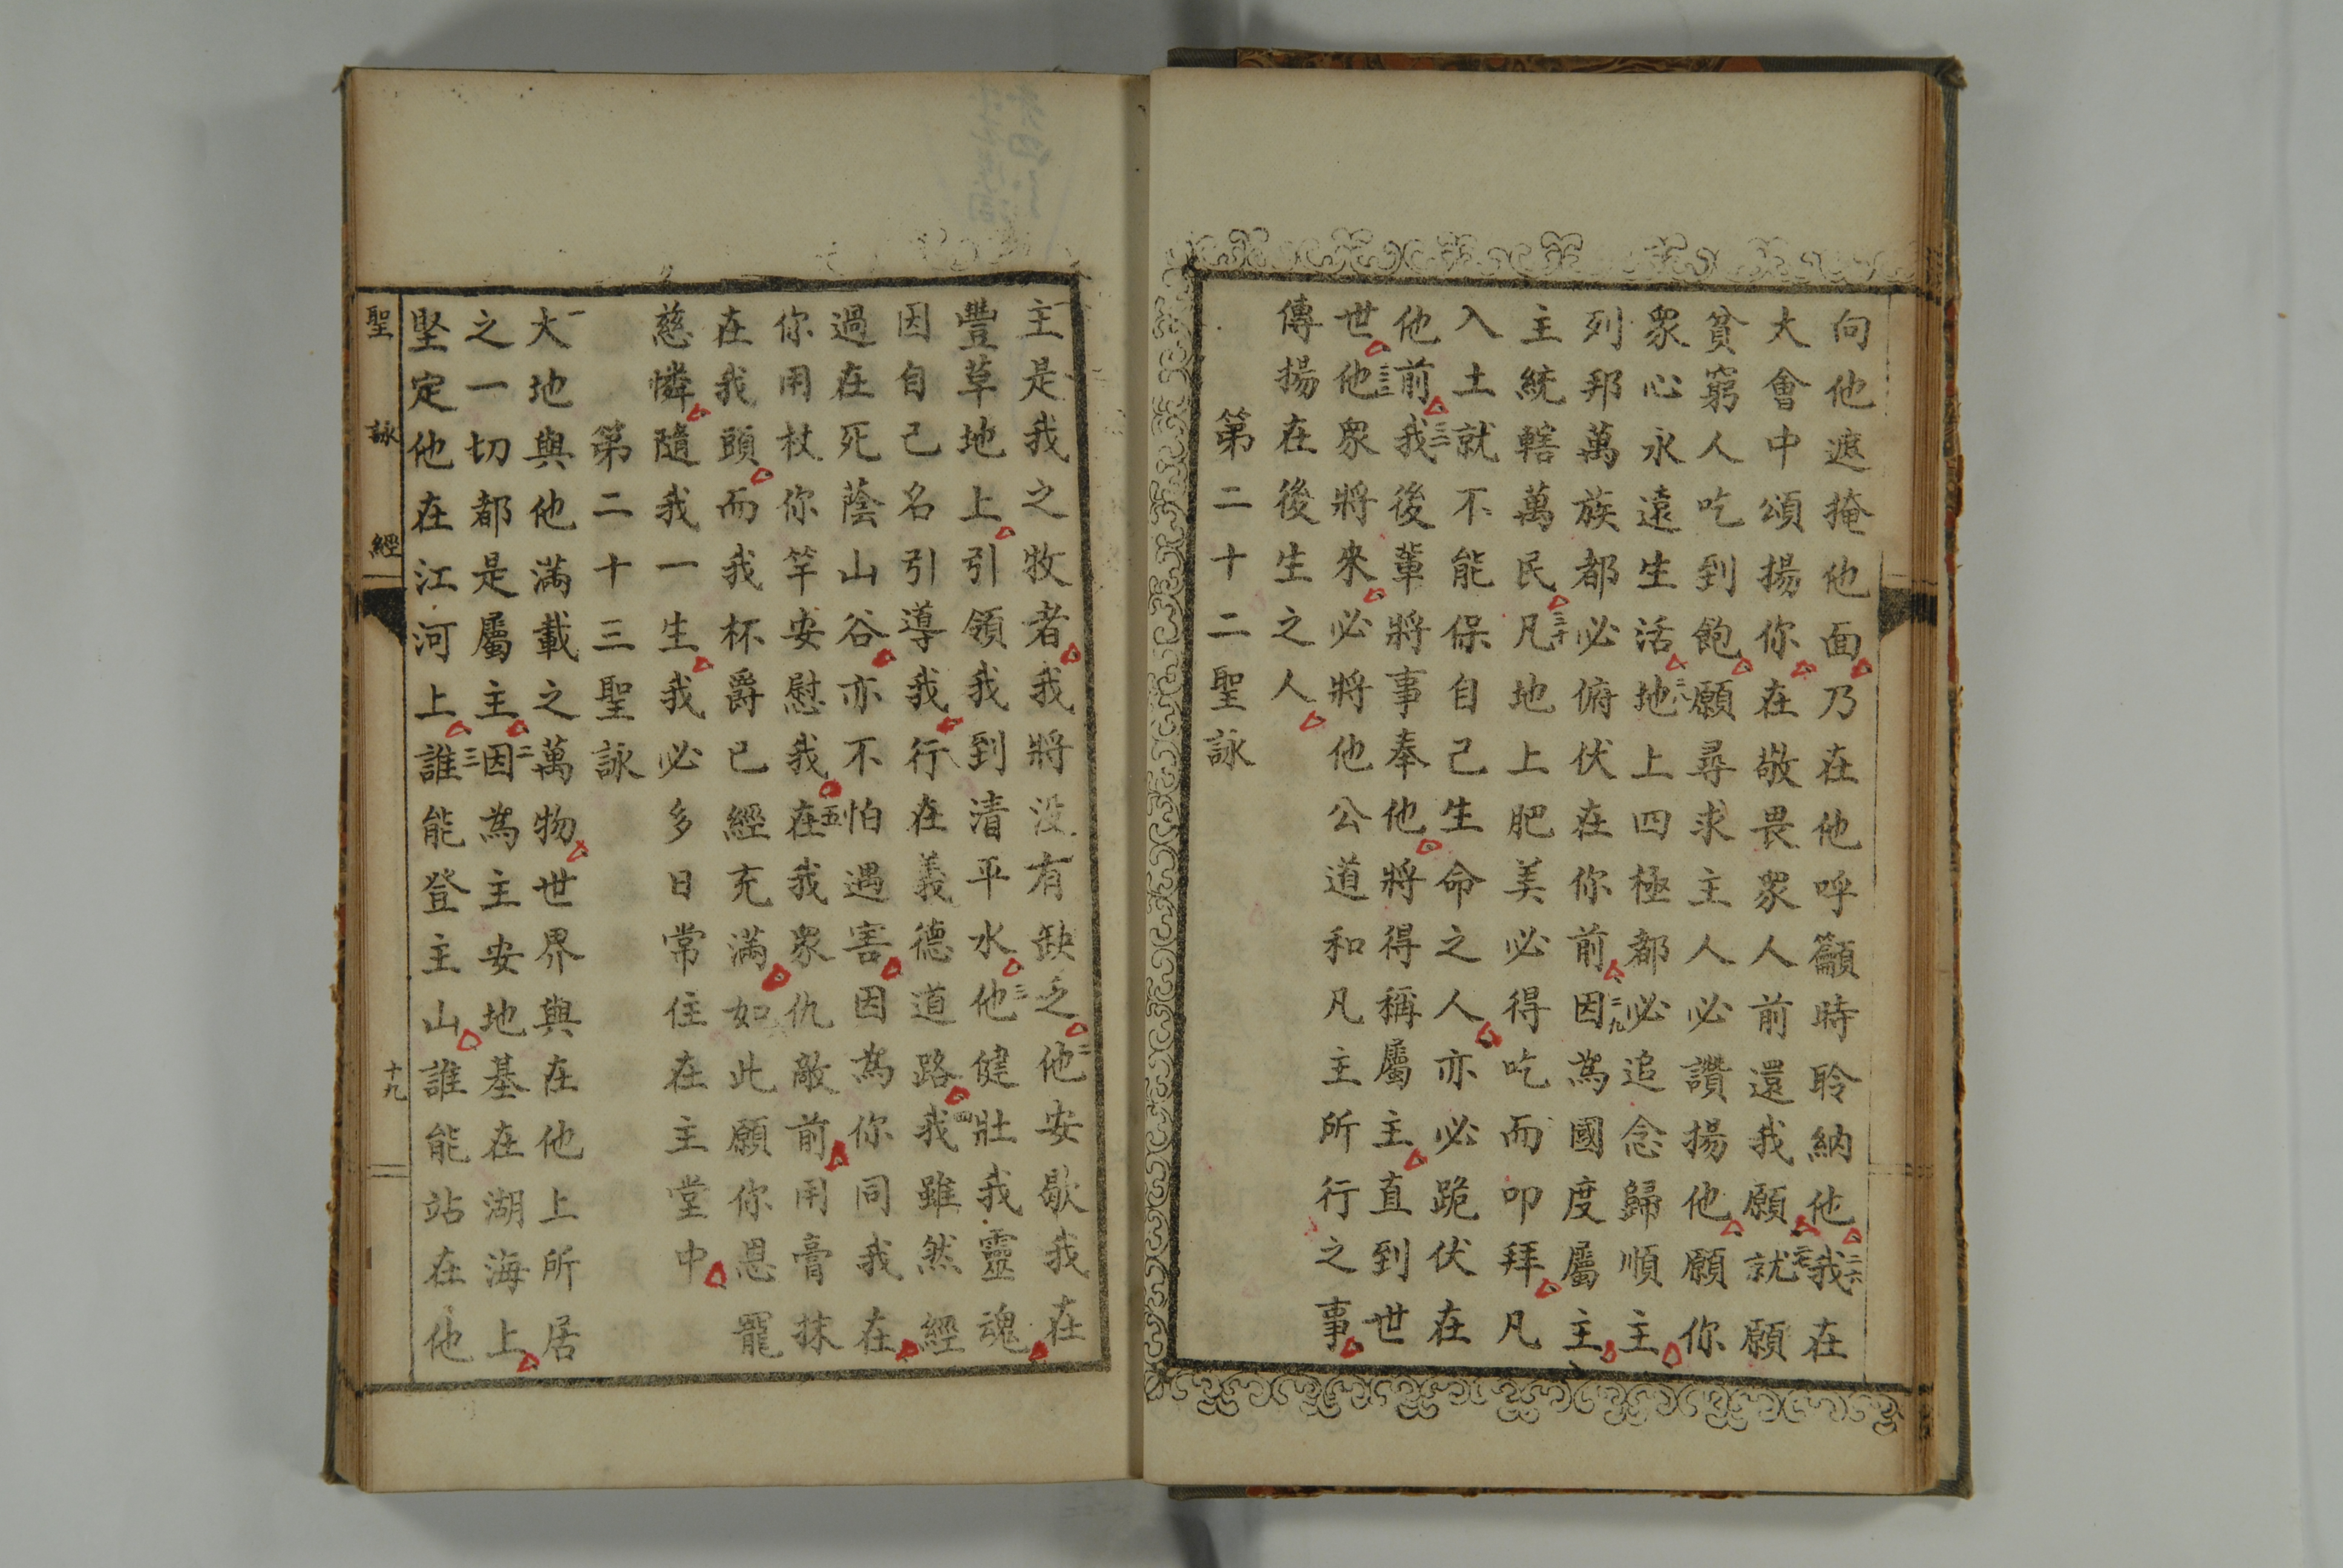 向他遮掩他面乃在他呼籲時聆納他二六我在
大會中頌揚你在敬畏衆人前還我願二七就願
貧窮人吃到飽願尋求主人必讚揚他願你
衆心永遠生活二八地上四極都必追念歸順主
列邦萬族都必俯伏在你前二九因為國度屬主
主統轄萬民三十凡地上肥美必得吃而叩拜凡
入土就不能保自己生命之人亦必跪伏在
他前三一我後輩將事奉他將得稱屬主直到世
世三二他衆將來必將他公道和凡主所行之事
傳揚在後生之人
第二十二聖詠
一主是我之牧者我將沒有缺乏二他安歇我在
豐草地上引領我到清平水三他健壯我靈魂
因自己名引導我行在義德道路四我雖然經
過在死蔭山谷亦不怕遇害因為你同我在
你用杖你竿安慰我五在我衆仇敵前用膏抹
在我頭而我杯爵已經充滿如此願你恩寵
慈憐隨我一生我必多日常住在主堂中
第二十三聖詠
一大地與他滿載之萬物世界與在他上所居
之一切都是屬主二因為主安地基在湖海上
堅定他在江河上三誰能登主山誰能站在他
聖詠經
十九